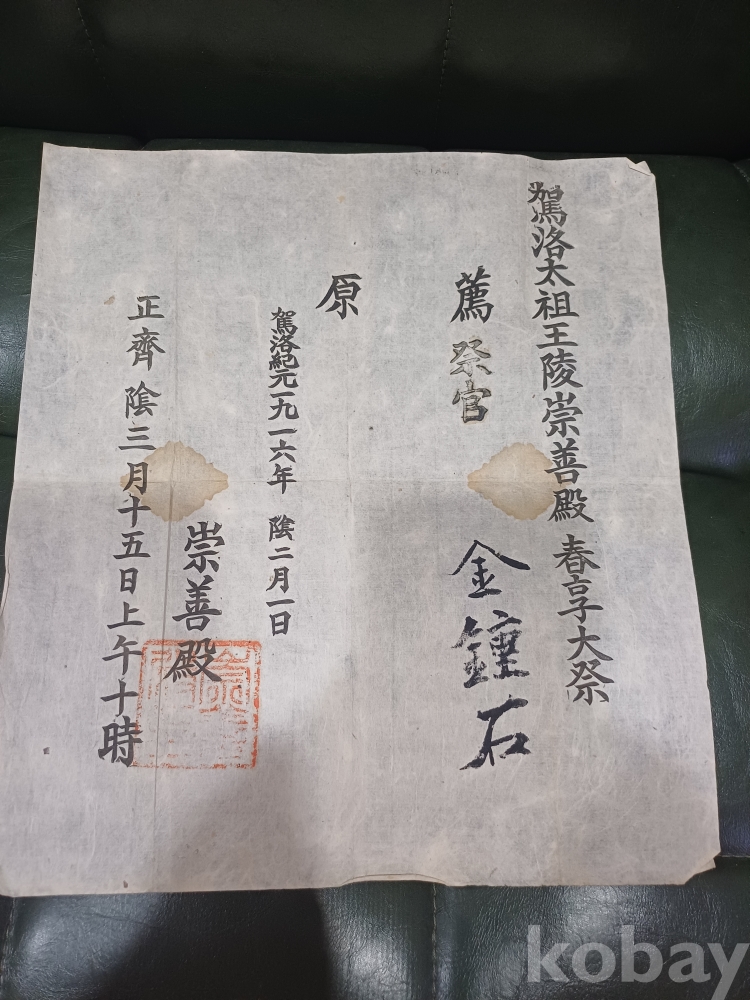 駕洛太祖王陵崇善殿 春享大祭
薦 祭官 金鍾石
原
駕洛紀元一九一六年 陰二月一日
崇善殿
正齊 陰三月十五日上午十時
kobay